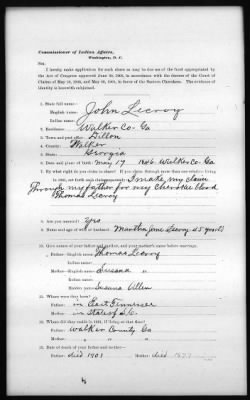 Commissioner of Indian Affairs,
Washington, D. C.
Sir:
I hereby make application for such share as may be due me of the fund appropriated by
the Act of Congress approved June 30, 1906, in accordance with the decrees of the Court of
Claims of May 18, 1905, and May 28, 1906, in favor of the Eastern Cherokees. The evidence of
identity is herewith subjoined.
1. State full name—
English name: John Lecroy
Indian name:
2. Residence: Walker Co- Ga
3. Town and post office: Dillon
4. County: Walker
5. State: Georgia
6. Date and place of birth: may 17 Walker Co- Ga
7. By what right do you claim to share? If you claim through more than one relative living
in 1851, set forth each claim separately: I make, my claim
Through my father for my cherokee blood
Thomas Lecroy
8. Are you married? yes
9. Name and age of wife or husband: Martha Jane Lecroy 45 years
10. Give names of your father and mother, and your mother's name before marriage.
Father—English name: Thomas Lecroy
Indian name:
Mother—English name: Susana "
Indian name:
Maiden name: Susana Allen
11. Where were they born?
Father: in East Tennessee
Mother: in State of S.C.
12. Where did they reside in 1851, if living at that time?
Father: Walker County Ga
Mother: " " "
13. Date of death of your father and mother—
Father: died 1901 Mother: died